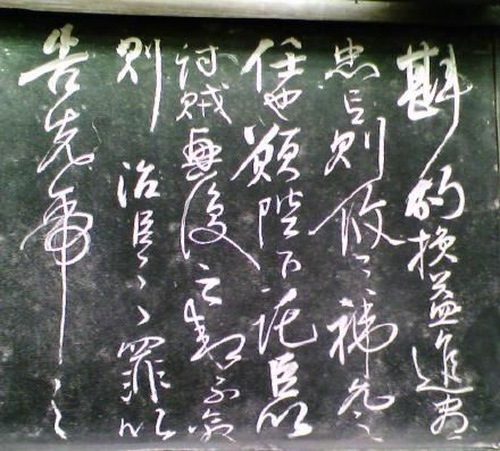 斟酌損益進盡
忠言則攸之禕允之
任也願陛下託臣以
討賊興復之効不效
則治臣之罪以
告先帝之